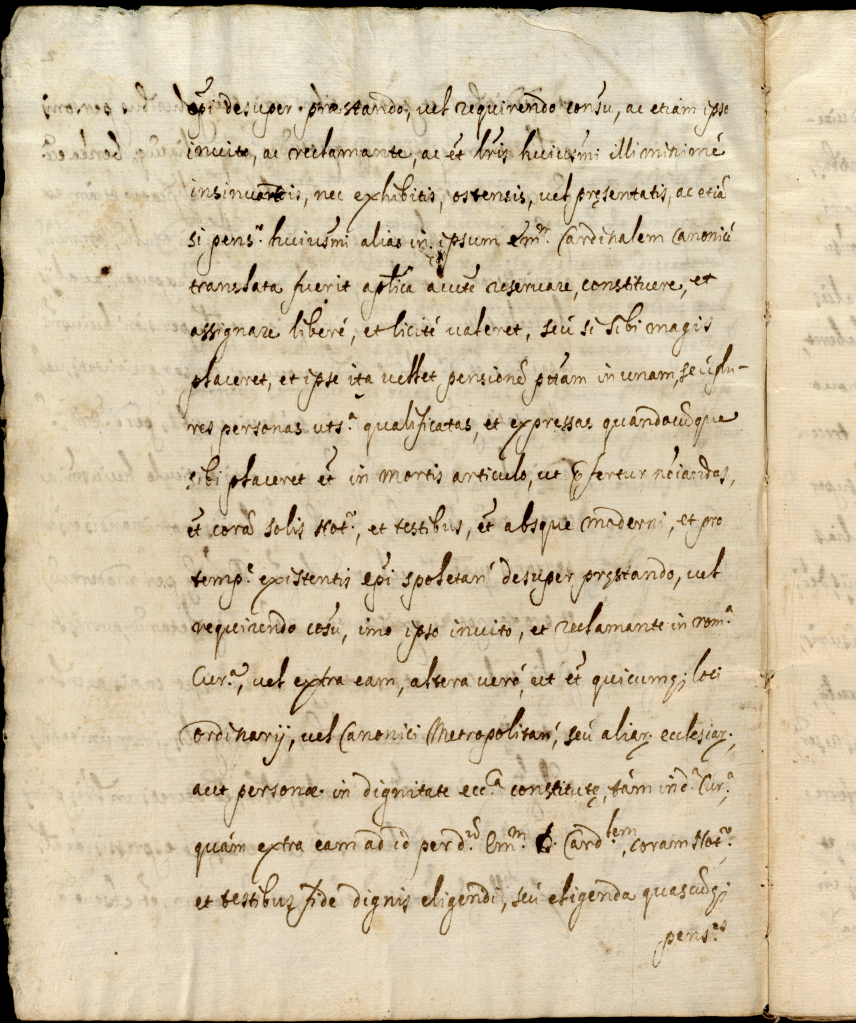 epĩ desuper præstando, vel requirendo consũ, ac etiam ipso
invito, ac reclamante, ac et̃ lrĩs huiusmĩ illi minimè
insinuatis, nec exhibitis, ostensis, vel pręsentatis, ac etiã
si pens.ᵒ huiusmĩ alias in ipsum Em.ᵐ Cardinalem Canonicè
translata fuerit aplĩca aucte reservare, constituere, et
assignare liberé, et licité valeret, seú si sibi magis
placeret, et ipse ita vellet pensionẽ pt̃am in unam, seú plu-
res personas uts.ᵃ qualificatas, et expressas quandocũque
sibi placeret et̃ in mortis articulo, ut p̃fertur noĩandas,
et̃ corã solis Not.ᵒ, et testibus, et̃ absque moderni, et pro
temp.ᵉ existentis epĩ spoletan̉ desuper pręstando, vel
requirendo cõsu, imo ipso invito, et reclamante in rom.ᵃ
Cur.ᵃ, vel extra eam, altera veró, ut et̃ quicumq; loci
ordinarij, vel Canonici Metropolitan̉, seú aliar. ecclesiar.,
aut personæ in dignitate ecc.ᵃ constitutę, tám in d.ᵃ Cur.ᵃ,
quám extra eam ad id per d.ᵘ Em.ᵐ D. Card.ˡᵉᵐ, coram Not.ᵒ,
et testibus fide dignis eligendi, seú eligenda quascũq;
pens.ᵉˢ